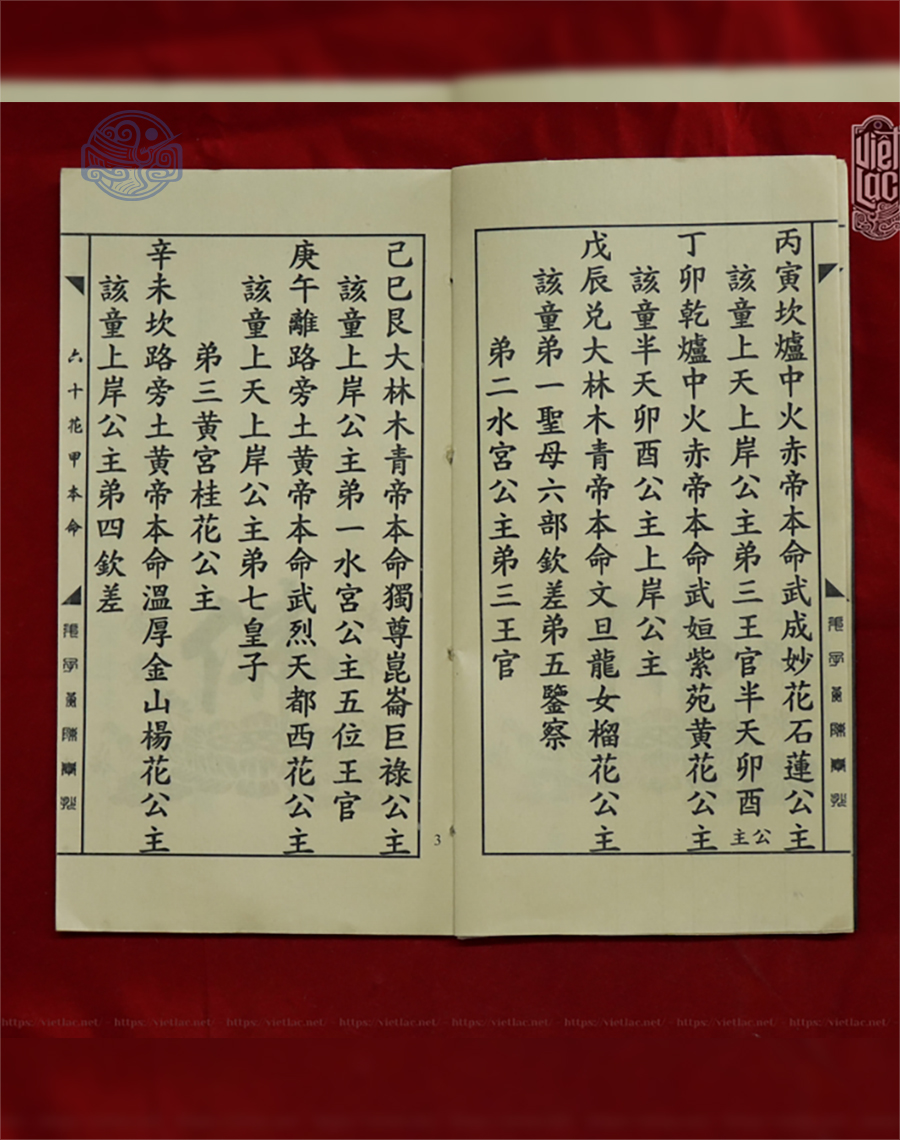 丙寅坎爐中火赤帝本命武成妙花石蓮公主
該童上天上岸公主弟三王官半天卯酉公主
丁卯乾爐中火赤帝本命武姮紫苑黄花公主
該童半天卯酉公主上岸公主
戊辰兑大林木青帝本命文旦龍女榴花公主
該童弟一聖母六部欽差弟五鑒察
弟二水宮公主弟三王官
己巳艮大林木青帝本命獨尊崑崙巨禄公主
該童上岸公主弟一水宮公主五位王官
庚午離路旁土黄帝本命武烈天都西花公主
該童上天上岸公主弟七皇子
弟三黄宮桂花公主
辛未坎路旁土黄帝本命溫厚金山楊花公主
該童上岸公主弟四欽差
六十花甲本命
3
Việt Lạc
https://vietlac.net/ - https://vietlac.net/ - https://vietlac.net/ - https://vietlac.net/ - https://vietlac.net/ - https://vietlac.net/ - https://vietlac.net/ - https://vietlac.net/